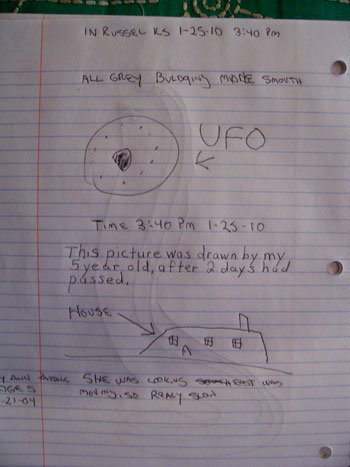 IN RUSSEL KS 1-25-10 3:40 Pm
ALL GREY BULDGING MADE SMOUTH
UFO
TIME 3:40 PM 1-25-10
This picture was drawn by my
5 year old, after 2 days had
passed.
HOUSE
A
SHE WAS LOOKING EAST WAS
MOVING, SO REALY SLOW
AGE 5
-21-04